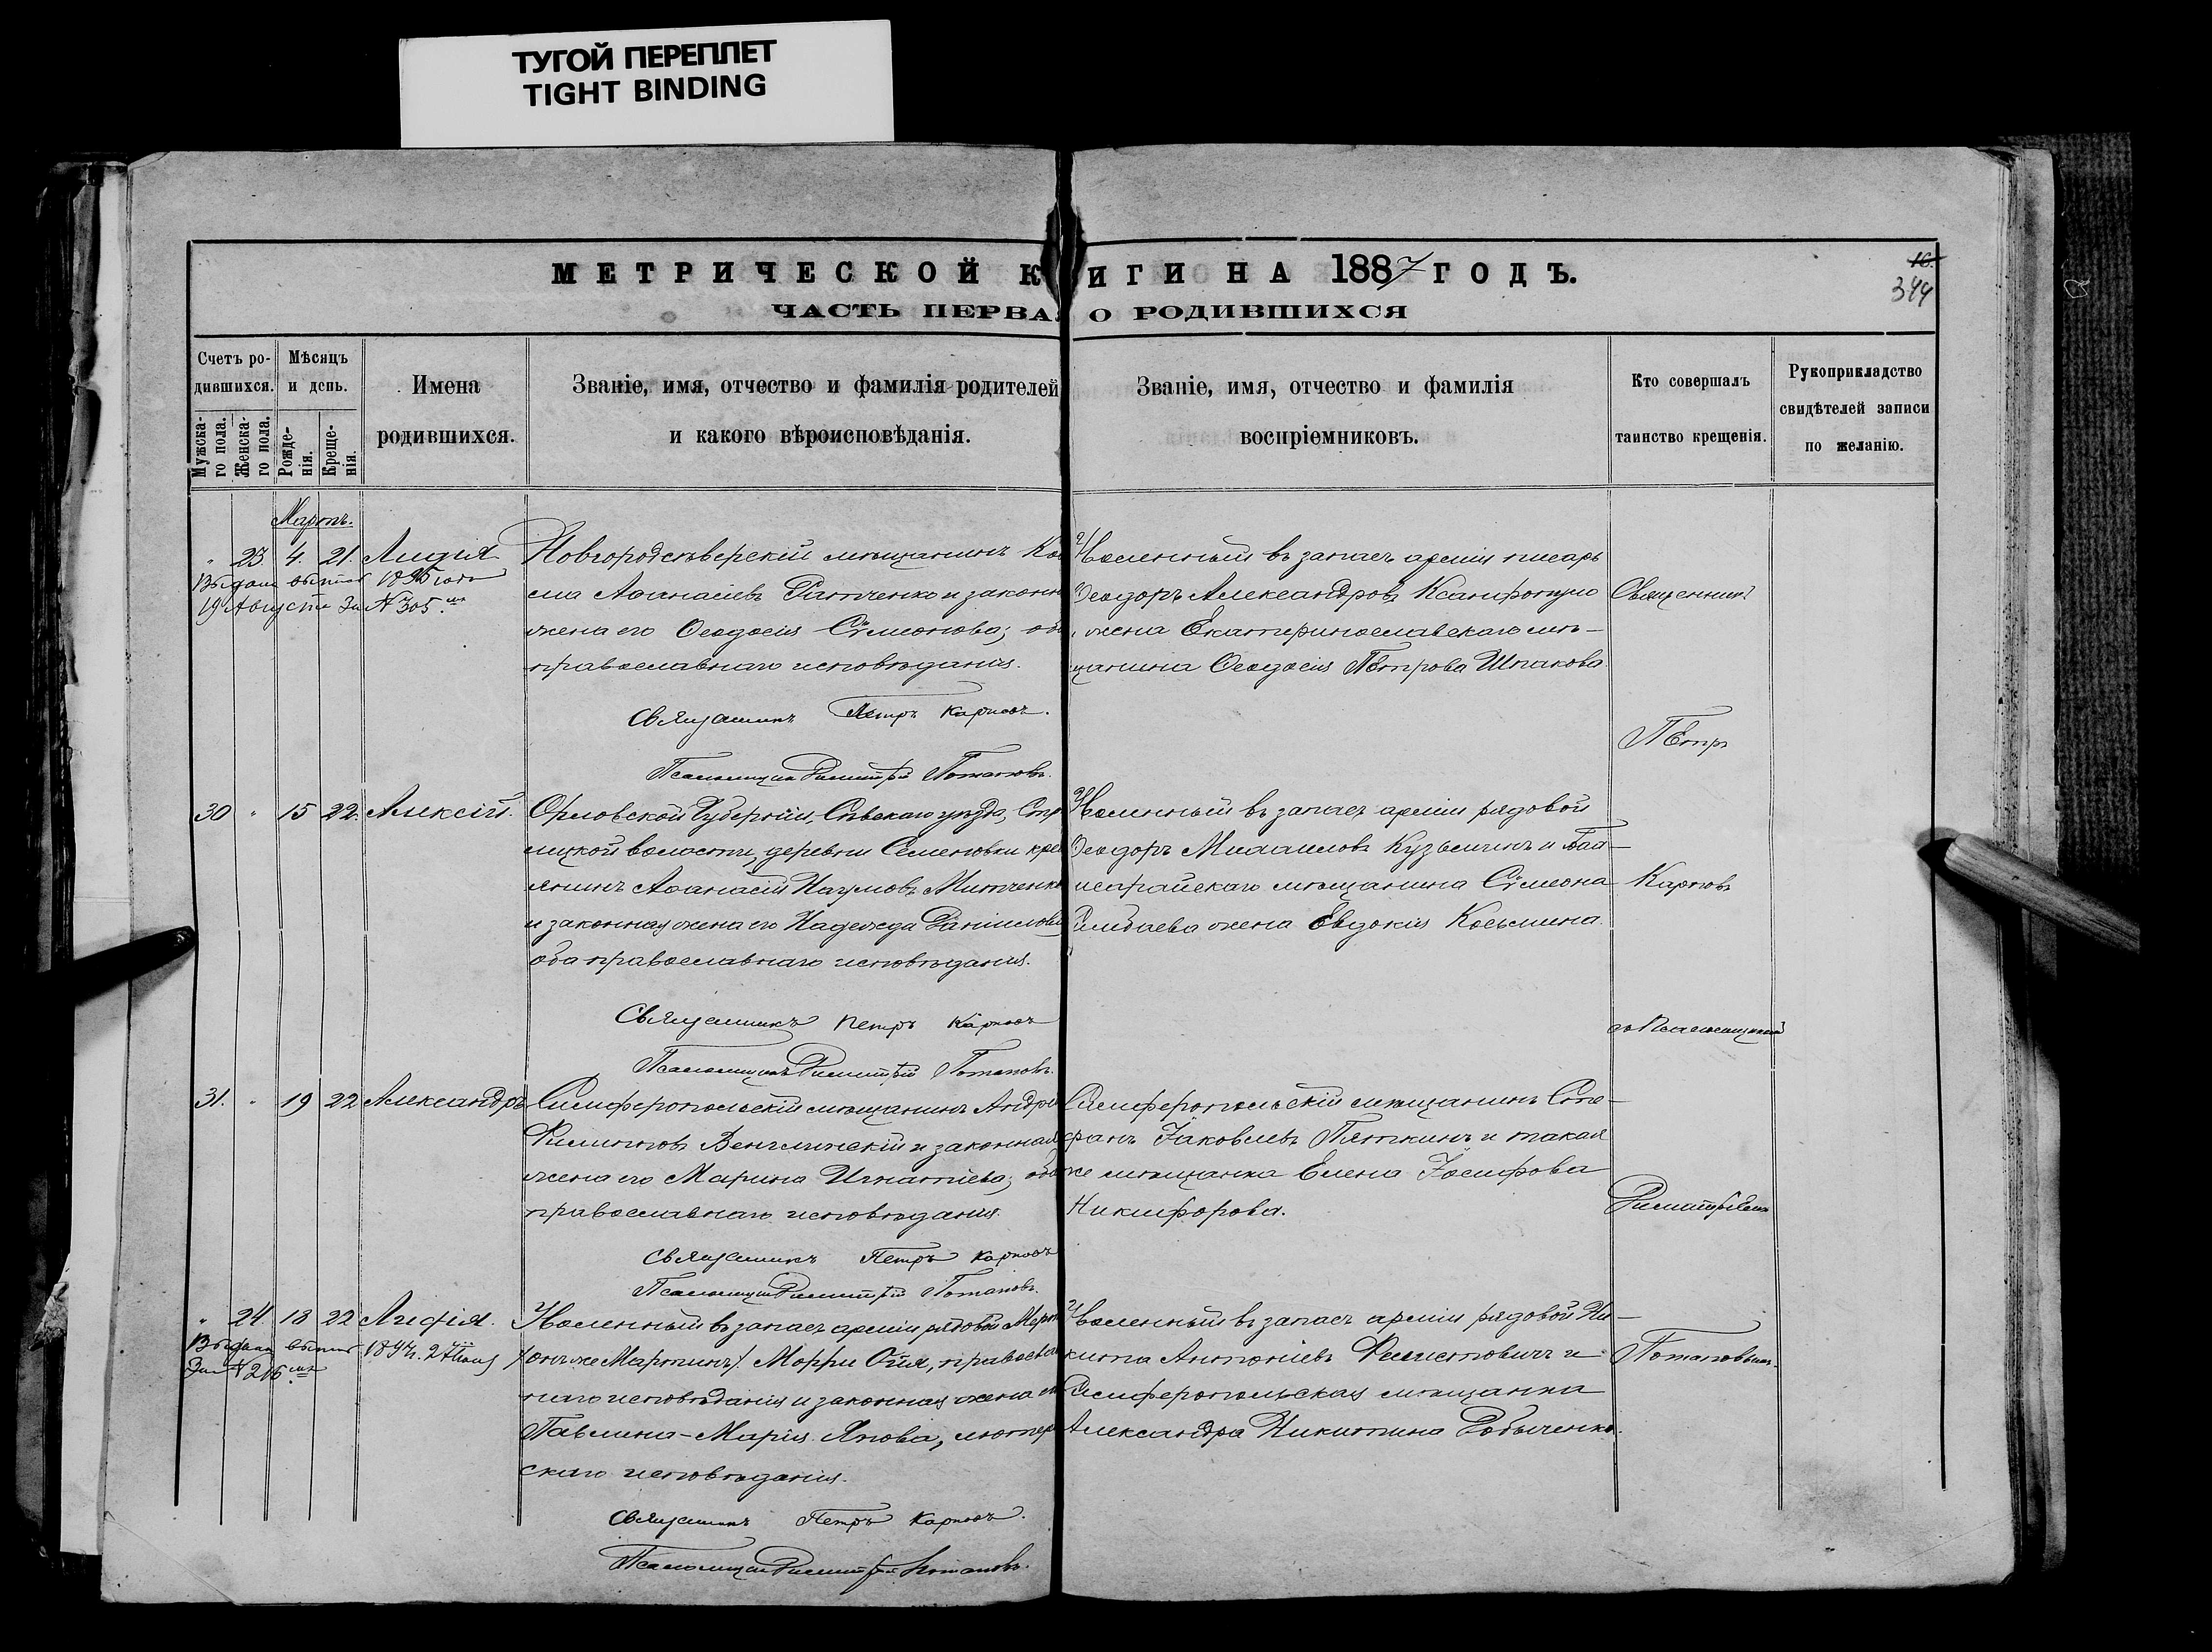 ТУГОЙ ПЕРЕПЛЕТ
TIGHT BINDING
МЕТРИЧЕСКОЙ К ИГИ НА 1887 ГОДЪ.
ЧАСТЬ ПЕРВАЯ О РОДИВШИХСЯ
16.
344
Счетъ ро-
дившихся.
Мужска-
го пола.
Женска-
го пола.
Мѣсяцъ
и день.
Рожде-
нія.
Креще-
нія.
Имена
родившихся.
Званіе, имя, отчество и фамилія родителей
и какого вѣроисповѣданія.
Званіе, имя, отчество и фамилія
воспріемниковъ.
Кто совершалъ
таинство крещенія.
Рукоприкладство
свидѣтелей записи
по желанію.
Мартъ.
" 23. 4. 21. Лидія
Выдана выпись 1895 года
19 Августа За № 305.
Новгородсѣверскій мѣщанинъ Кос
ма Аѳанасіевъ Ратченко и законн
жена его Ѳеодосія Сѵмеонова; об
православнаго исповѣданія.
Священникъ Петръ Карповъ.
Псаломщикъ Димитрій Потаповъ.
Уволенный въ запасъ арміи писарь
Ѳеодоръ Александровъ
жена Екатеринославскаго мѣ-
щанина Ѳеодосія Петрова Шпакова.
Священникъ
Петръ
30 " 15 22. Алексій.
Орловской Губерніи, Сѣвскаго уѣзда, Стр
лицкой волости, деревни Семеновки кре
янинъ Аѳанасій Наумовъ Митченко
и законная жена его Надежда Даніилова
оба православнаго исповѣданія.
Священникъ Петръ Карповъ
Псаломщикъ Димитрій Потаповъ.
Уволенный въ запасъ арміи рядовой
Ѳеодоръ Михаиловъ Кузьминъ и Бах-
чисарайскаго мѣщанина Сѵмеона
жена Евдокія Косьмина.
Карповъ
съ Псаломщикомъ
31. " 19 22 Александръ
Симферопольскій мѣщанинъ Андре
Филипповъ и законная
жена его Марина Игнатіева; оба
православнаго исповѣданія.
Священникъ Петръ Карповъ
Псаломщикъ Димитрій Потаповъ.
Симферопольскій мѣщанинъ Сте-
фанъ Іаковлевъ Пяткинъ и такая
же мѣщанка Елена Іосифова
Никифорова.
Димитріемъ
" 24. 18 22
Выдана выпись 1894 г. 27 Іюня
За № 216
Уволенный въ запасъ арміи рядовой Март
/онъ же Мартинъ/ православ
наго исповѣданія и законная жена ег
Павлина-Марія Янова, лютер
скаго исповѣданія.
Священникъ Петръ Карповъ.
Псаломщикъ Димитрій Потаповъ.
Уволенный въ запасъ арміи рядовой Ни-
кита Антоніевъ и
Симферопольская мѣщанка
Александра Никитина
Потаповымъ.